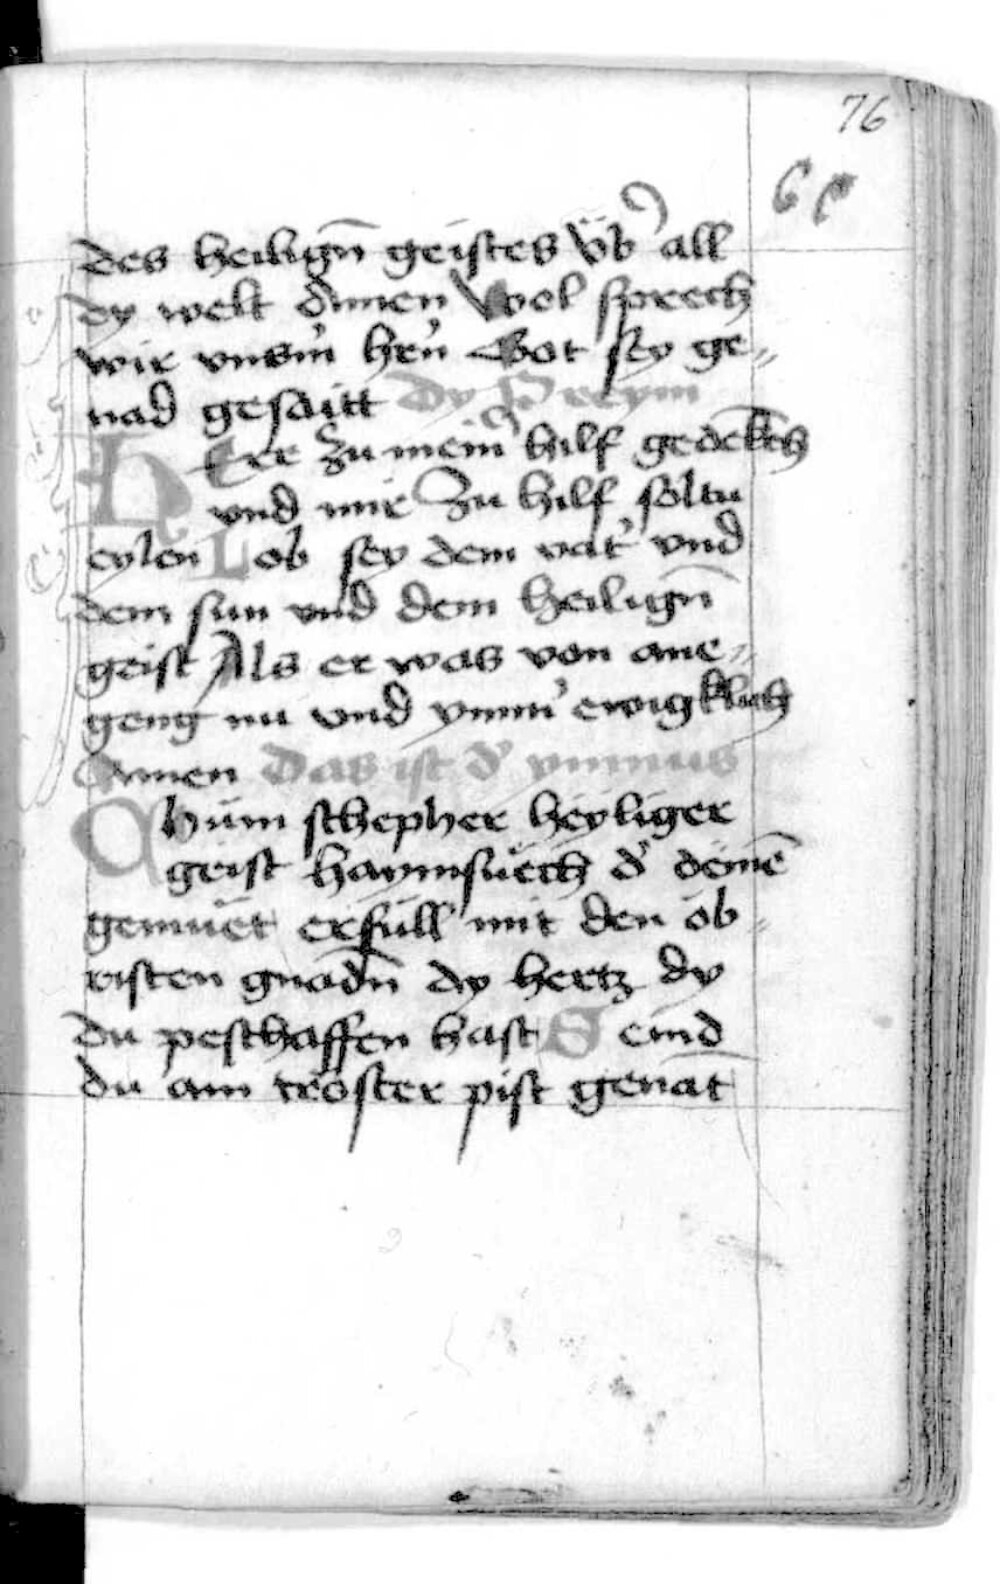 76
des heilign̄ geistes v̈b' all
dy welt Amen Wol sprech
wir vnsm̄ hrn̄ Got sey ge„
nad gesaitt Dy p̄ reym
HErr zu mein' hilf gedek̄ch
vnd mir Zu hilf soltu
eylen Lob sey dem vat' vnd
dem sun vnd dem heilign̄
geist Als er was von ane„
geng nu vnd ymm' ewigklich
Amen Das ist d' ymnus
Chüm schepher heyliger
geist haymsuech d' deinē
gemüet erfüll mit den ob„
risten gnadn̄ dy hertz dy
du peschaffen hast Seind
du ain tröster pist genāt